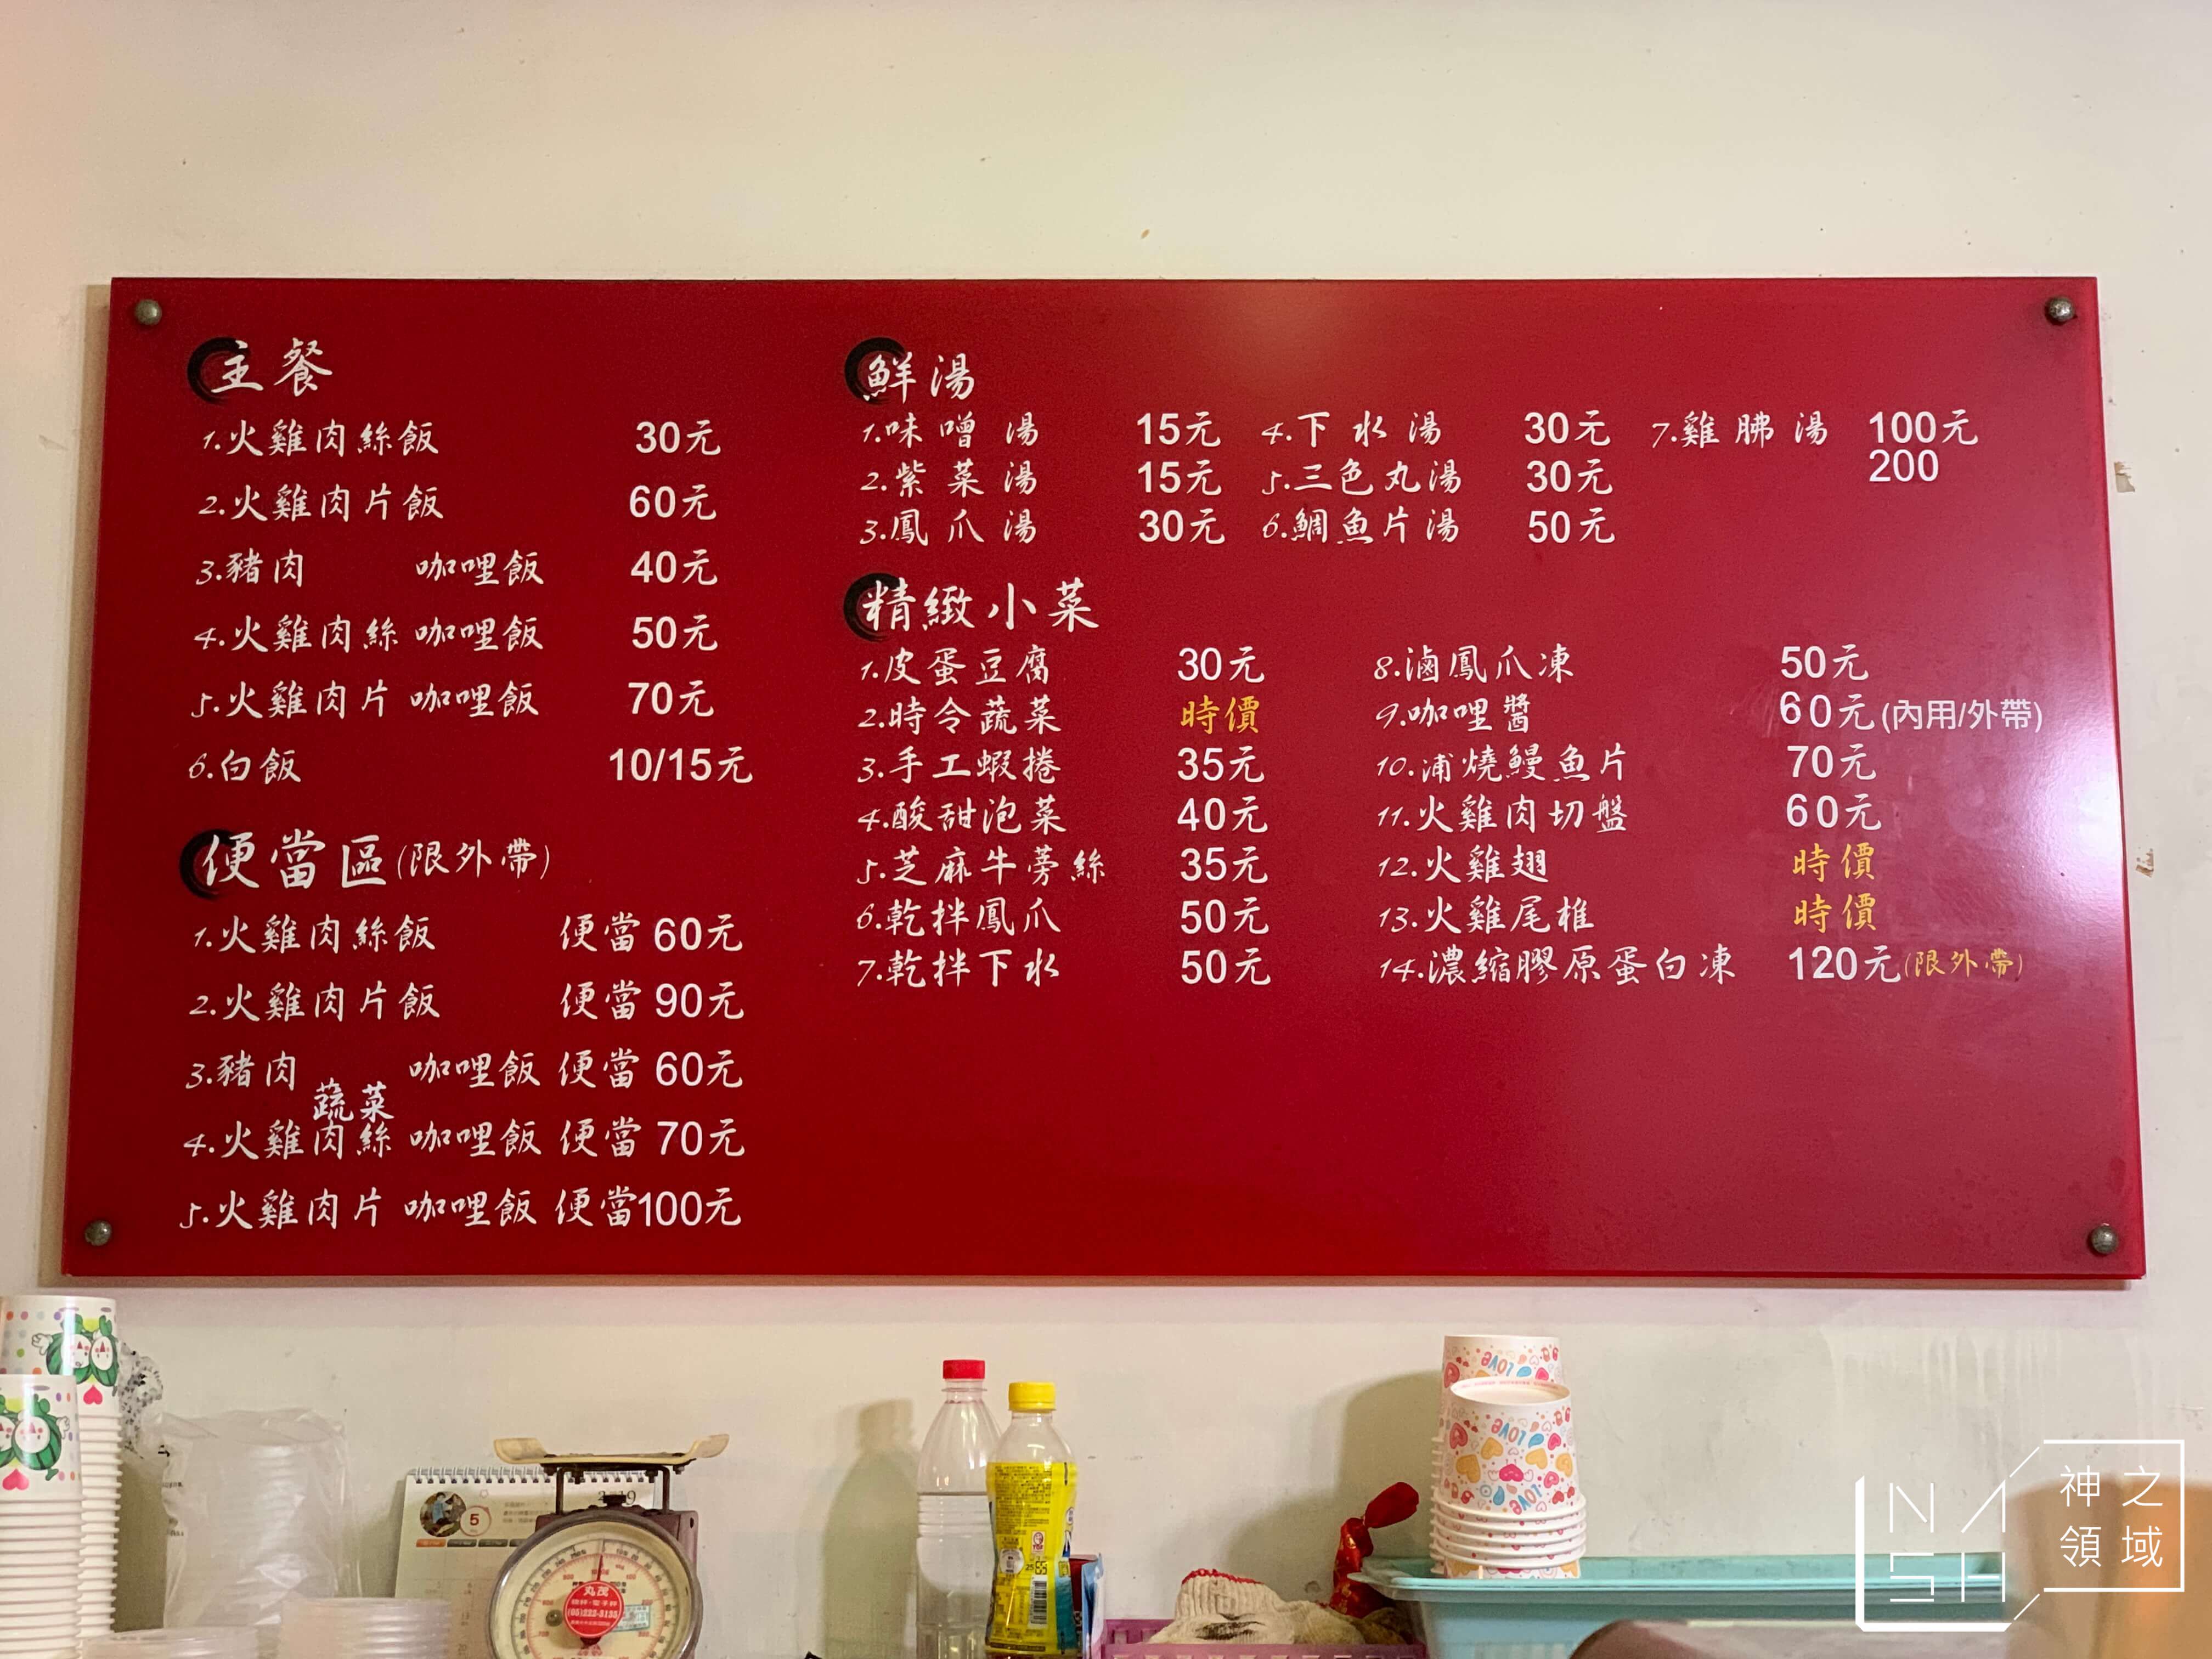 主餐
1.火雞肉絲飯 30元
2.火雞肉片飯 60元
3.豬肉 咖哩飯 40元
4.火雞肉絲 咖哩飯 50元
5.火雞肉片 咖哩飯 70元
6.白飯 10/15元
便當區(限外帶)
1.火雞肉絲飯 便當 60元
2.火雞肉片飯 便當 90元
3.豬肉 咖哩飯 便當 60元
蔬菜
4.火雞肉絲 咖哩飯 便當 70元
5.火雞肉片 咖哩飯 便當100元
鮮湯
1.味噌湯 15元 4.下水湯 30元 7.雞胇湯 100元
200
2.紫菜湯 15元 5.三色丸湯 30元
3.鳳爪湯 30元 6.鯛魚片湯 50元
精緻小菜
1.皮蛋豆腐 30元 8.滷鳳爪凍 50元
2.時令蔬菜 時價 9.咖哩醬 60元(內用/外帶)
3.手工蝦捲 35元 10.浦燒鰻魚片 70元
4.酸甜泡菜 40元 11.火雞肉切盤 60元
5.芝麻牛蒡絲 35元 12.火雞翅 時價
6.乾拌鳳爪 50元 13.火雞尾椎 時價
7.乾拌下水 50元 14.濃縮膠原蛋白凍 120元(限外帶)
LOVE
LOVE
LOVE
5
丸茂
(05)222-3135
NASH
神之
領域